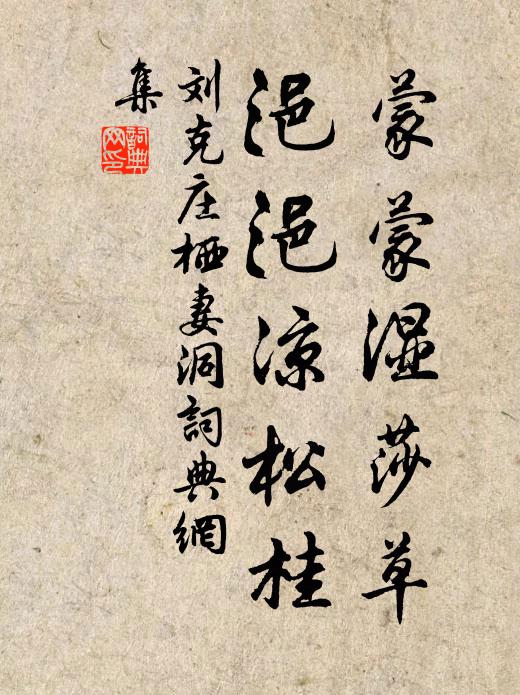 蒙蒙湿莎草
浥浥凉松桂
刘克庄栖妻洞詞典網
集
詞典网印